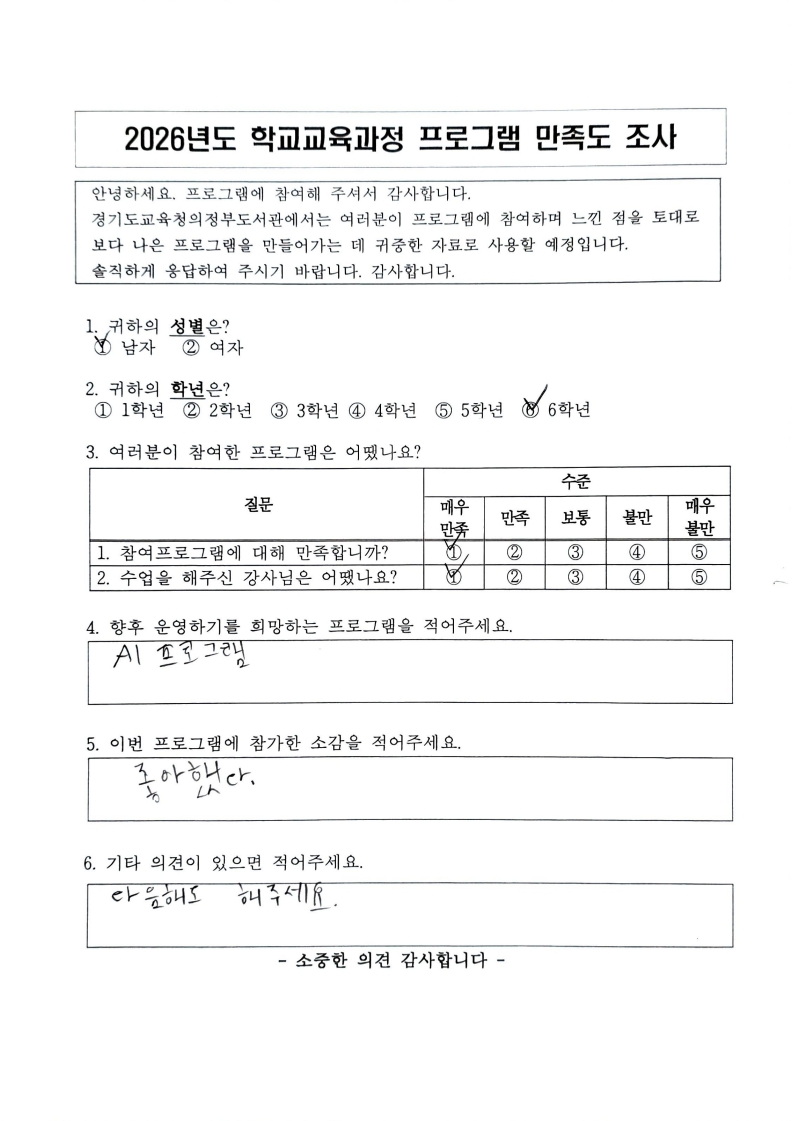 2026년도 학교교육과정 프로그램 만족도 조사
안녕하세요. 프로그램에 참여해 주셔서 감사합니다.
경기도교육청의정부도서관에서는 여러분이 프로그램에 참여하며 느낀 점을 토대로
보다 나은 프로그램을 만들어가는 데 귀중한 자료로 사용할 예정입니다.
솔직하게 응답하여 주시기 바랍니다. 감사합니다.
1. 귀하의 성별은?
① 남자 ② 여자
2. 귀하의 학년은?
① 1학년 ② 2학년 ③ 3학년 ④ 4학년 ⑤ 5학년 ⑥ 6학년
3. 여러분이 참여한 프로그램은 어땠나요?
질문 수준
매우 만족 만족 보통 불만 매우 불만
1. 참여프로그램에 대해 만족합니까? ① ② ③ ④ ⑤
2. 수업을 해주신 강사님은 어땠나요? ① ② ③ ④ ⑤
4. 향후 운영하기를 희망하는 프로그램을 적어주세요.
AI 프로그램
5. 이번 프로그램에 참가한 소감을 적어주세요.
좋아했다.
6. 기타 의견이 있으면 적어주세요.
다음해도 해주세요.
- 소중한 의견 감사합니다 -